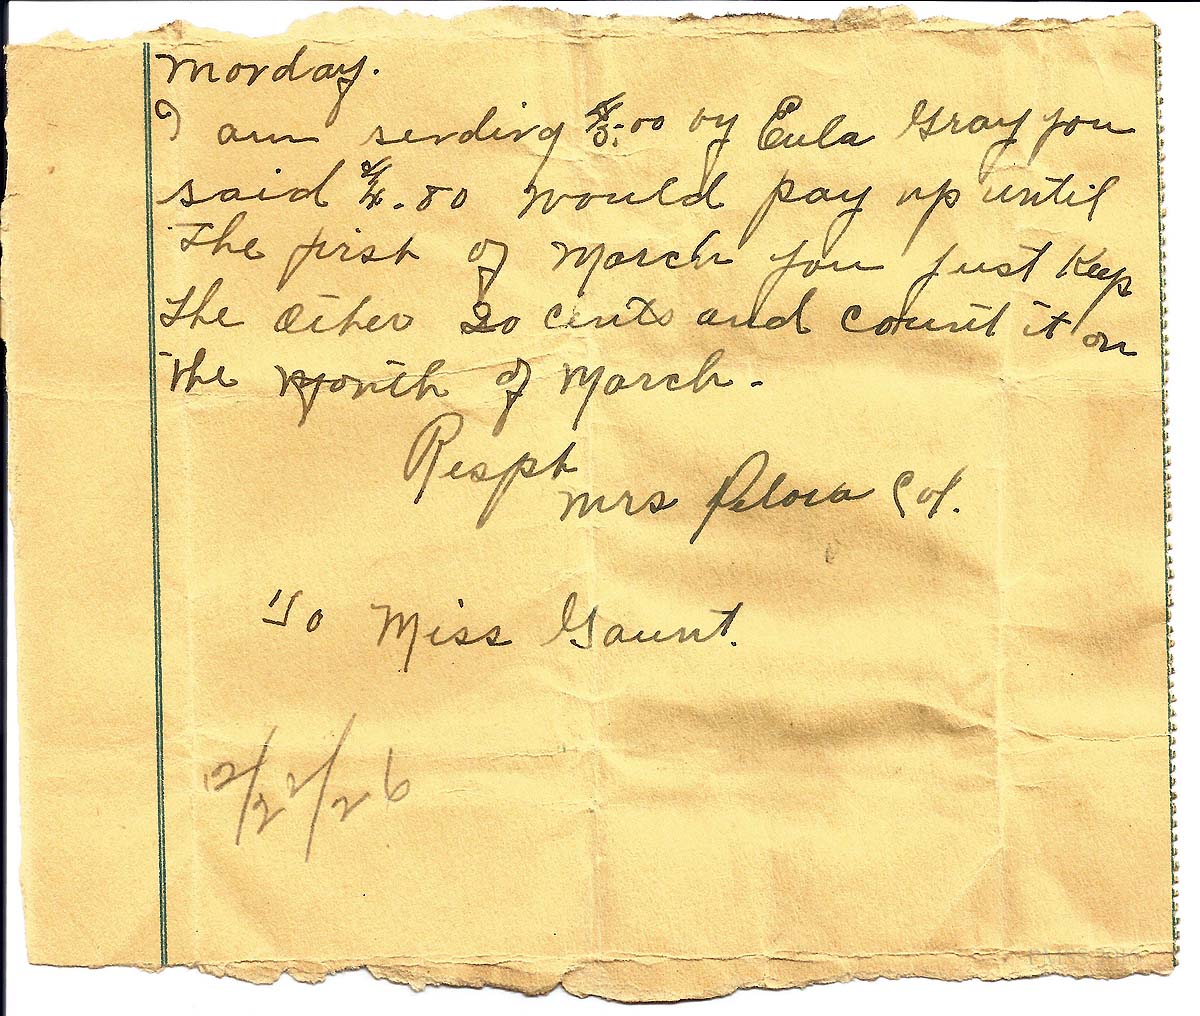 Monday.
I am sending $5.00 by Eula Gray you
said $4.80 would pay up until
the first of March you just Keep
the other 20 cents and count it on
the Month of March.
Respt
Mrs
To Miss Gaunt.
12/22/26